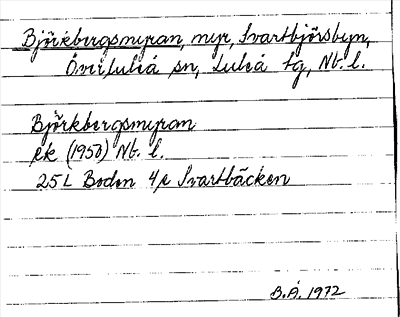 Björkbergsmyran, myr, Svartbjörsbyn,
Överluleå sn, Luleå tg, Nb. l.
Björkbergsmyran
ek (1950) Nb. l.
25 L Boden 4/e Svartbäcken
B.Å. 1972